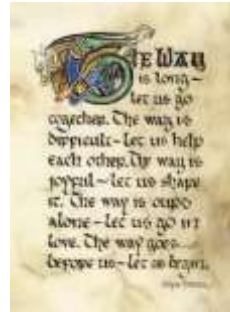 The Way
is long~
let us go
together. The way is
difficult~let us help
each other. The way is
joyful~let us share
it. The way is ours
alone~let us go in
love. The way goes
before us~let us begin.